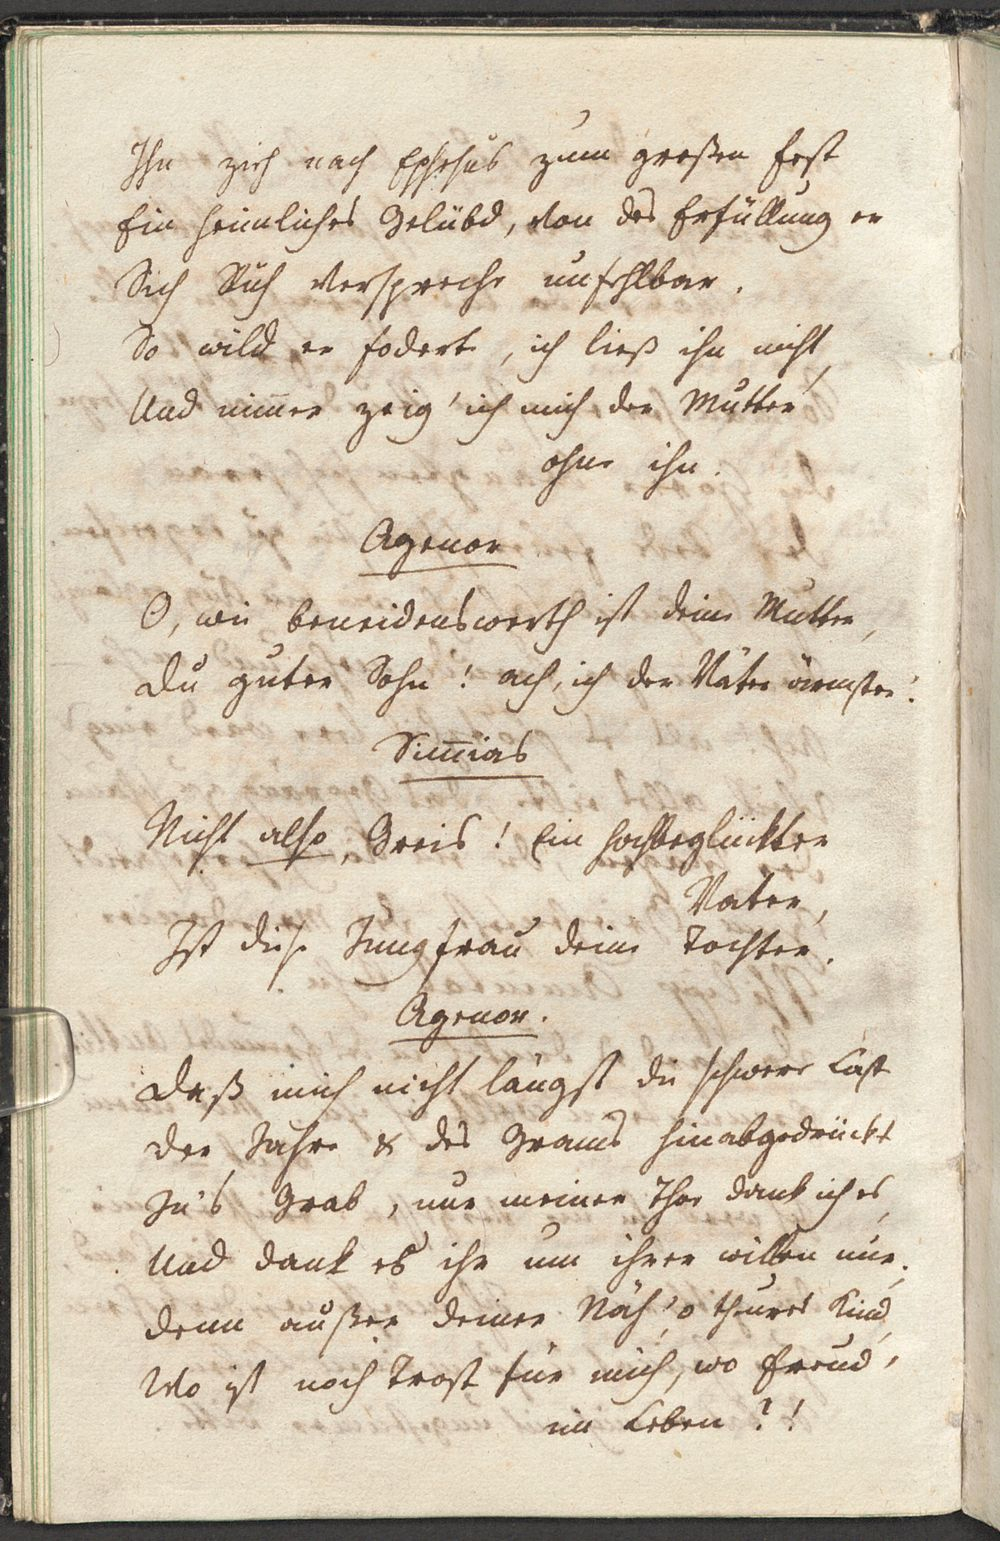 Ihn zieh nach Ephesus zum großen Fest
Ein heimliches Gelübd, von des Erfüllung er
Sich Ruh verspreche unfehlbar.
So wild er foderte, ich ließ ihn nicht,
Und nim̄er zeig' ich mich der Mutter
ohne ihn.
Agenor
O, wie beneidenswerth ist deine Mutter,
Du guter Sohn! ach, ich der Väter ärmster!
Sim̄ias
Nicht also, Greis! Ein hochbeglückter
Vater,
Ist diese Jungfrau deine Tochter.
Agenor.
Daß mich nicht längst die schwere Last
Der Jahre & des Grams hinabgedrückt
In's Grab, nur meiner Thoe dank ich es,
Und dank es ihr um ihrer willen nur.
Denn außer deiner Näh', o theures Kind,
Wo ist noch Trost für mich, wo Freud'
im Leben?!